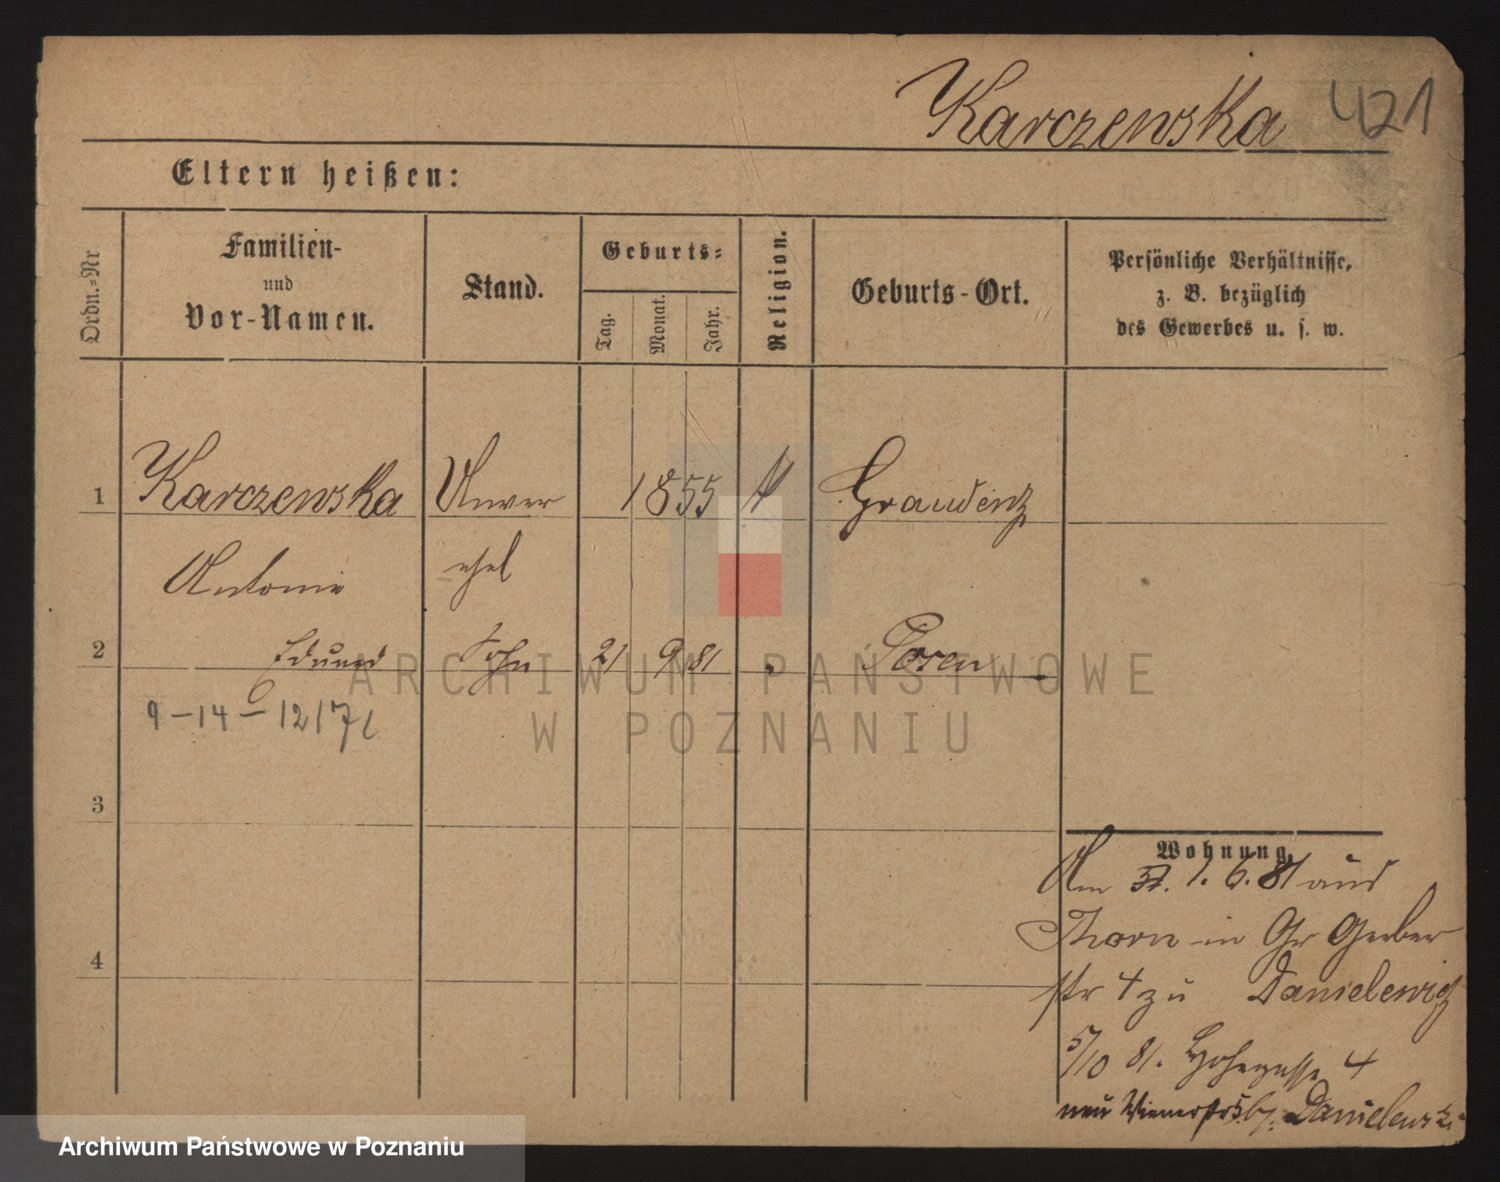 Karczewska 421
Eltern heißen:
Ordn.-Nr
Familien-
und
Vor-Namen.
Stand.
Geburts-
Tag.
Monat.
Jahr.
Religion.
Geburts-Ort.
Persönliche Verhältnisse,
z. B. bezüglich
des Gewerbes u. s. w.
1 Karczewska Unver 1855 Graudenz
Antonie ehel
2 Eduard Sohn 21 9 81 Posen
9-14-12171
3
4
Wohnung.
Am 1. 6. 81 aus
Thorn in Gr Gerber
str 4 zu Danielewicz
5/10 81. Hohegasse 4
neu Wienerstr 5. b/. Danielewski
ARCHIWUM PAŃSTWOWE
W POZNANIU
Archiwum Państwowe w Poznaniu